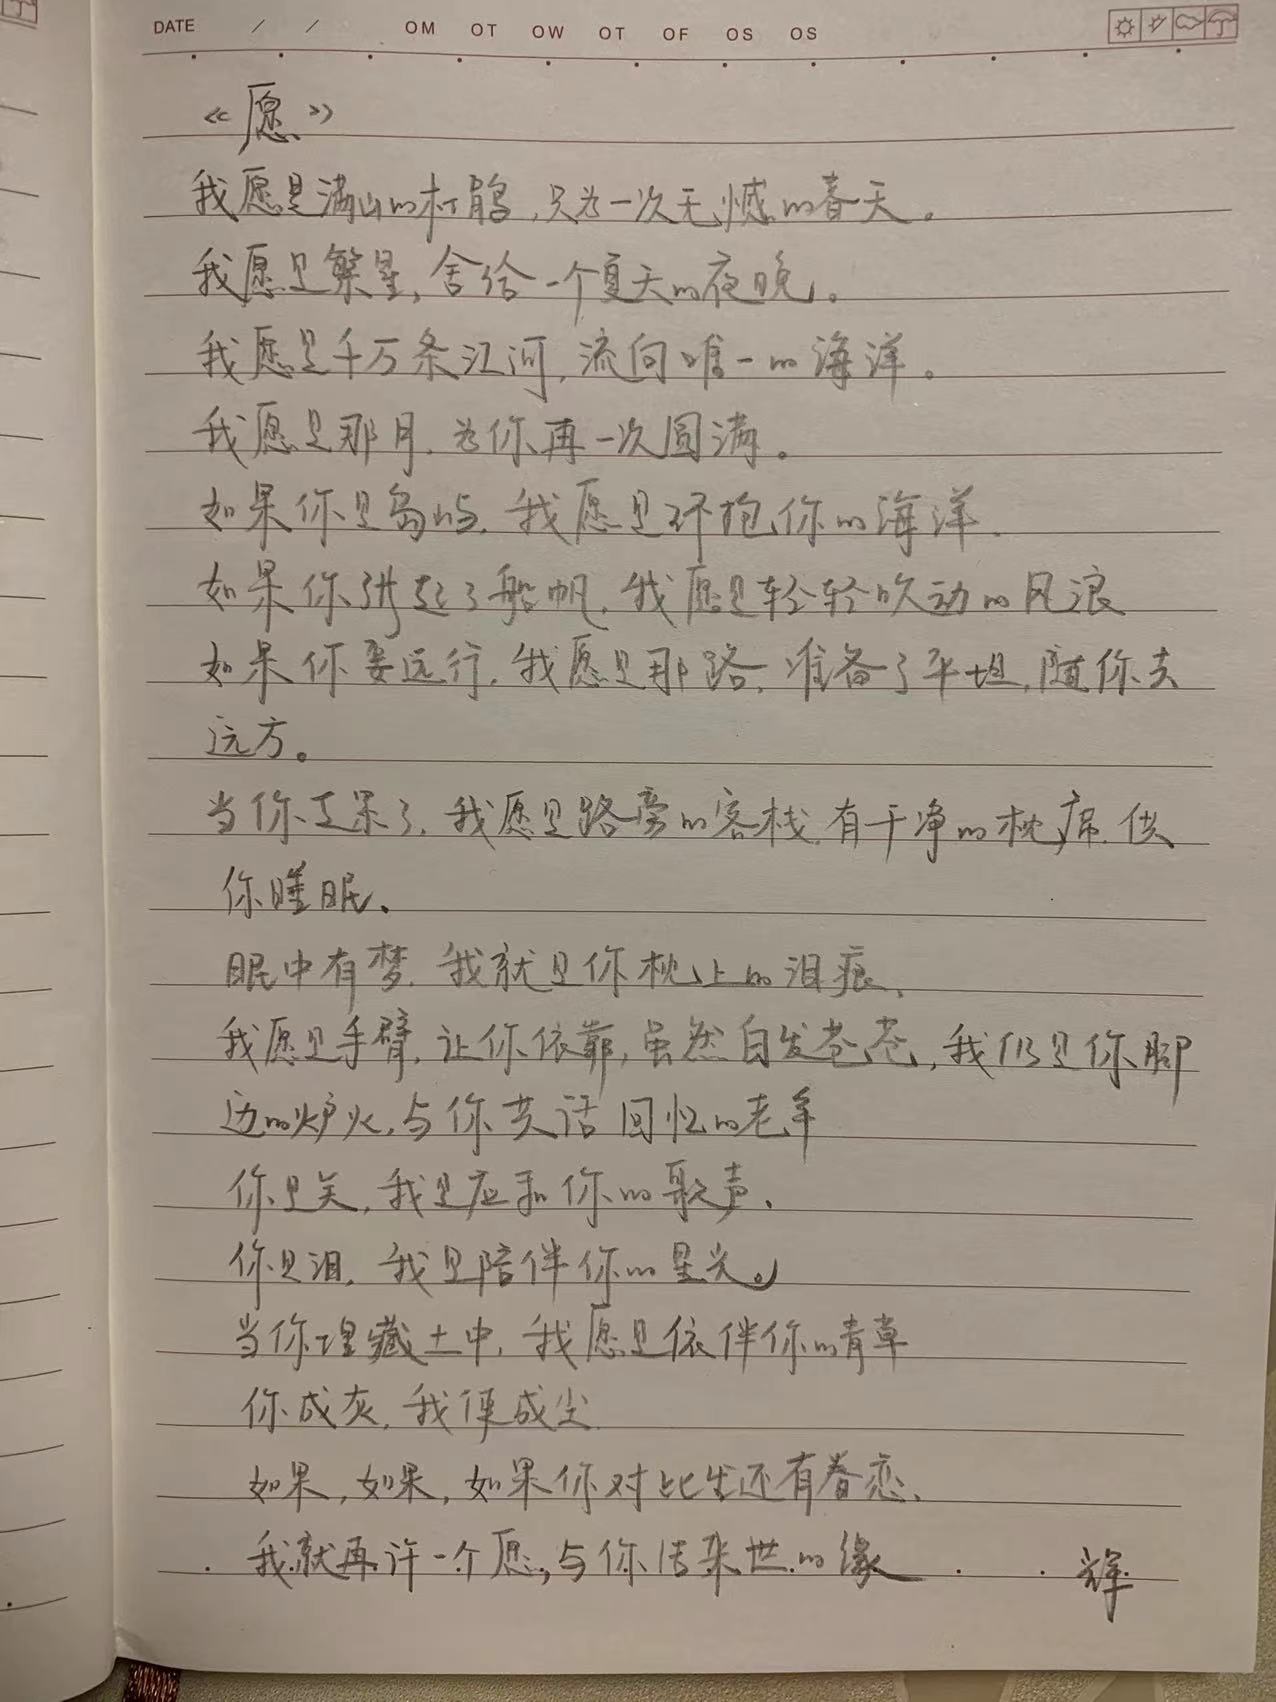 DATE / / OM OT OW OT OF OS OS
《愿》
我愿是满山的杜鹃,只为一次无憾的春天。
我愿是繁星,舍给一个夏天的夜晚。
我愿是千万条江河,流向唯一的海洋。
我愿是那月,为你再一次圆满。
如果你是岛屿,我愿是环抱你的海洋.
如果你张起了船帆,我愿是轻轻吹动的风浪
如果你要远行,我愿是那路,准备了平坦,随你去
远方。
当你走累了,我愿是路旁的客栈,有干净的枕席,供
你睡眠、
眠中有梦,我就是你枕上的泪痕、
我愿是手臂,让你依靠,虽然白发苍苍,我仍是你脚
边的炉火,与你共话回忆的老年
你是笑,我是应和你的歌声、
你是泪,我是陪伴你的星光。
当你埋藏土中,我愿是依伴你的青草
你成灰,我便成尘
如果,如果,如果你对此生还有眷恋、
我就再许一个愿,与你结来世的缘
辉